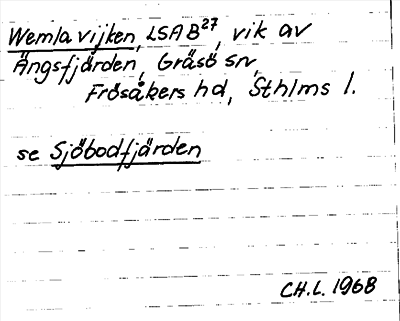 Wemla vijken, LSA B27, vik av
Ängsfjärden, Gräsö srv,
Frösåkers hd, Sthlms l.
se Sjöbodfjärden
CH.L. 1968